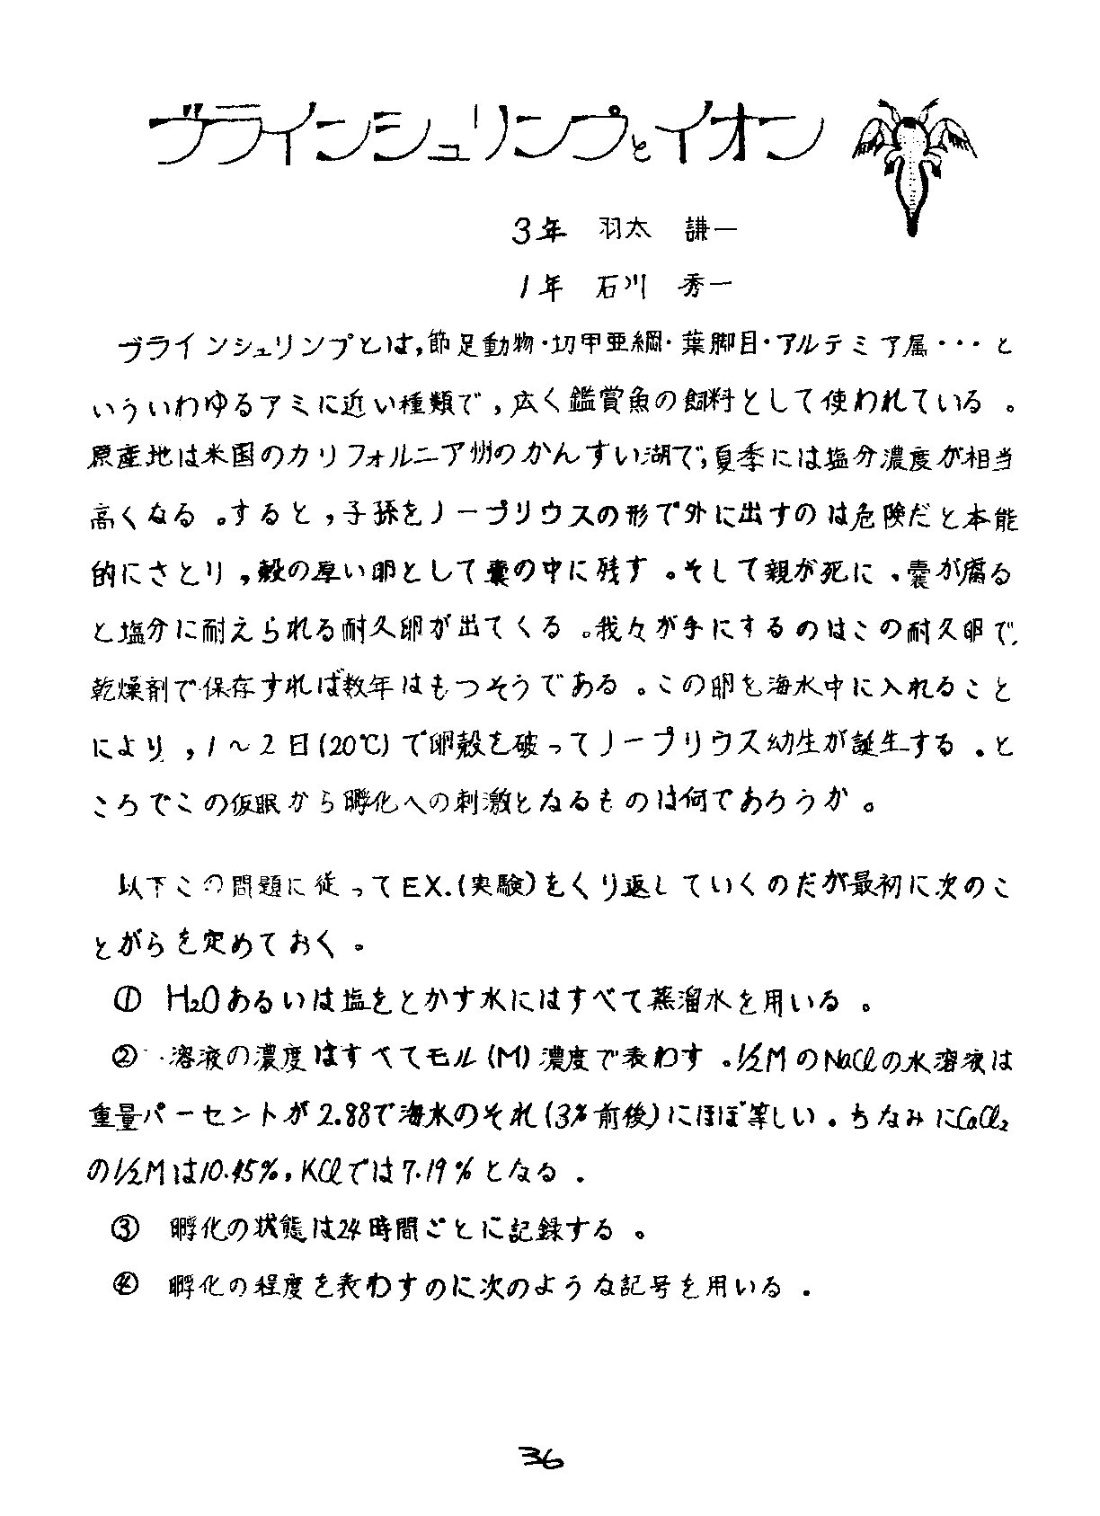 ブラインシュリンプとイオン
3年 羽太 謙一
1年 石川 秀一
ブラインシュリンプとは,節足動物・切甲亜綱・葉脚目・アルテミア属・・・と
いういわゆるアミに近い種類で,広く鑑賞魚の飼料として使われている。
原産地は米国のカリフォルニア州のかんすい湖で,夏季には塩分濃度が相当
高くなる。すると,子孫をノープリウスの形で外に出すのは危険だと本能
的にさとり,殻の厚い卵として嚢の中に残す。そして親が死に,嚢が腐る
と塩分に耐えられる耐久卵が出てくる。我々が手にするのはこの耐久卵で,
乾燥剤で保存すれば数年はもつそうである。この卵を海水中に入れること
により,1〜2日(20℃)で卵殻を破ってノープリウス幼生が誕生する。と
ころでこの仮眠から孵化への刺激となるものは何であろうか。
以下この問題に従ってEX.(実験)をくり返していくのだが最初に次のこ
とがらを定めておく。
① H₂Oあるいは塩をとかす水にはすべて蒸溜水を用いる。
② 溶液の濃度はすべてモル(M)濃度で表わす。½MのNaClの水溶液は
重量パーセントが2.88で海水のそれ(3%前後)にほぼ等しい。ちなみにCaCl₂
の½Mは10.45%,KClでは7.19%となる。
③ 孵化の状態は24時間ごとに記録する。
④ 孵化の程度を表わすのに次のような記号を用いる。
36